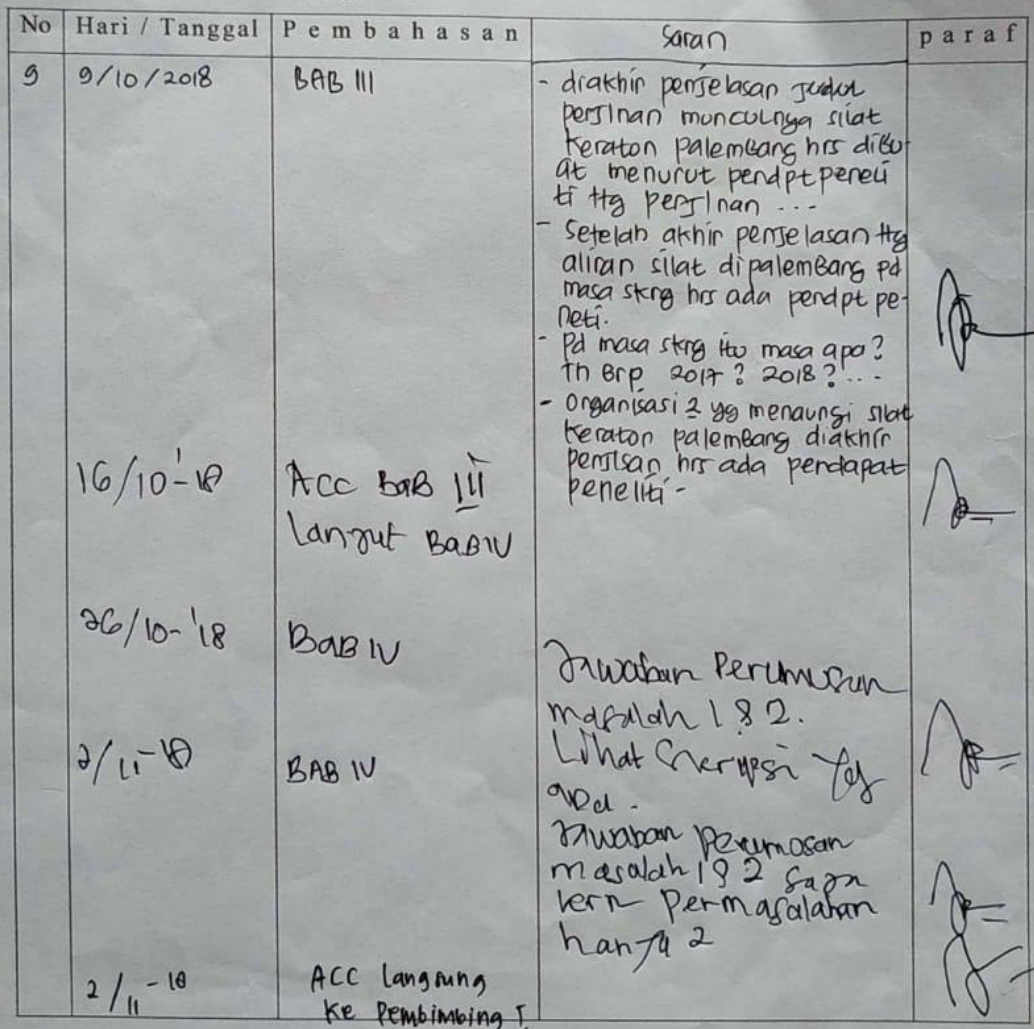 No Hari / Tanggal Pembahasan Saran paraf
9 9/10/2018 BAB III
- diakhir penjelasan judul
persinan munculnya silat
keraton palembang hrs dibu
at menurut pendpt peneli
ti ttg persinan ...
- Setelah akhir penjelasan ttg
aliran silat dipalembang pd
masa skrg hrs ada pendpt pe-
neti.
- Pd masa skrg itu masa apa?
Th Brp 2017? 2018? ...
- Organisasi2 yg menaungi silat
keraton palembang diakhir
hrs ada pendapat
peneliti -
16/10-'18 ACC BAB III
Lanjut BAB IV
26/10-'18 BAB IV
Jawaban Perumusan
masalah 1 & 2.
2/11-18 BAB IV
Lihat yg
ada.
Jawaban Perumosan
masalah 1 & 2 saja
Permasalahan
hanya 2
2/11-18 ACC langsung
ke Pembimbing I